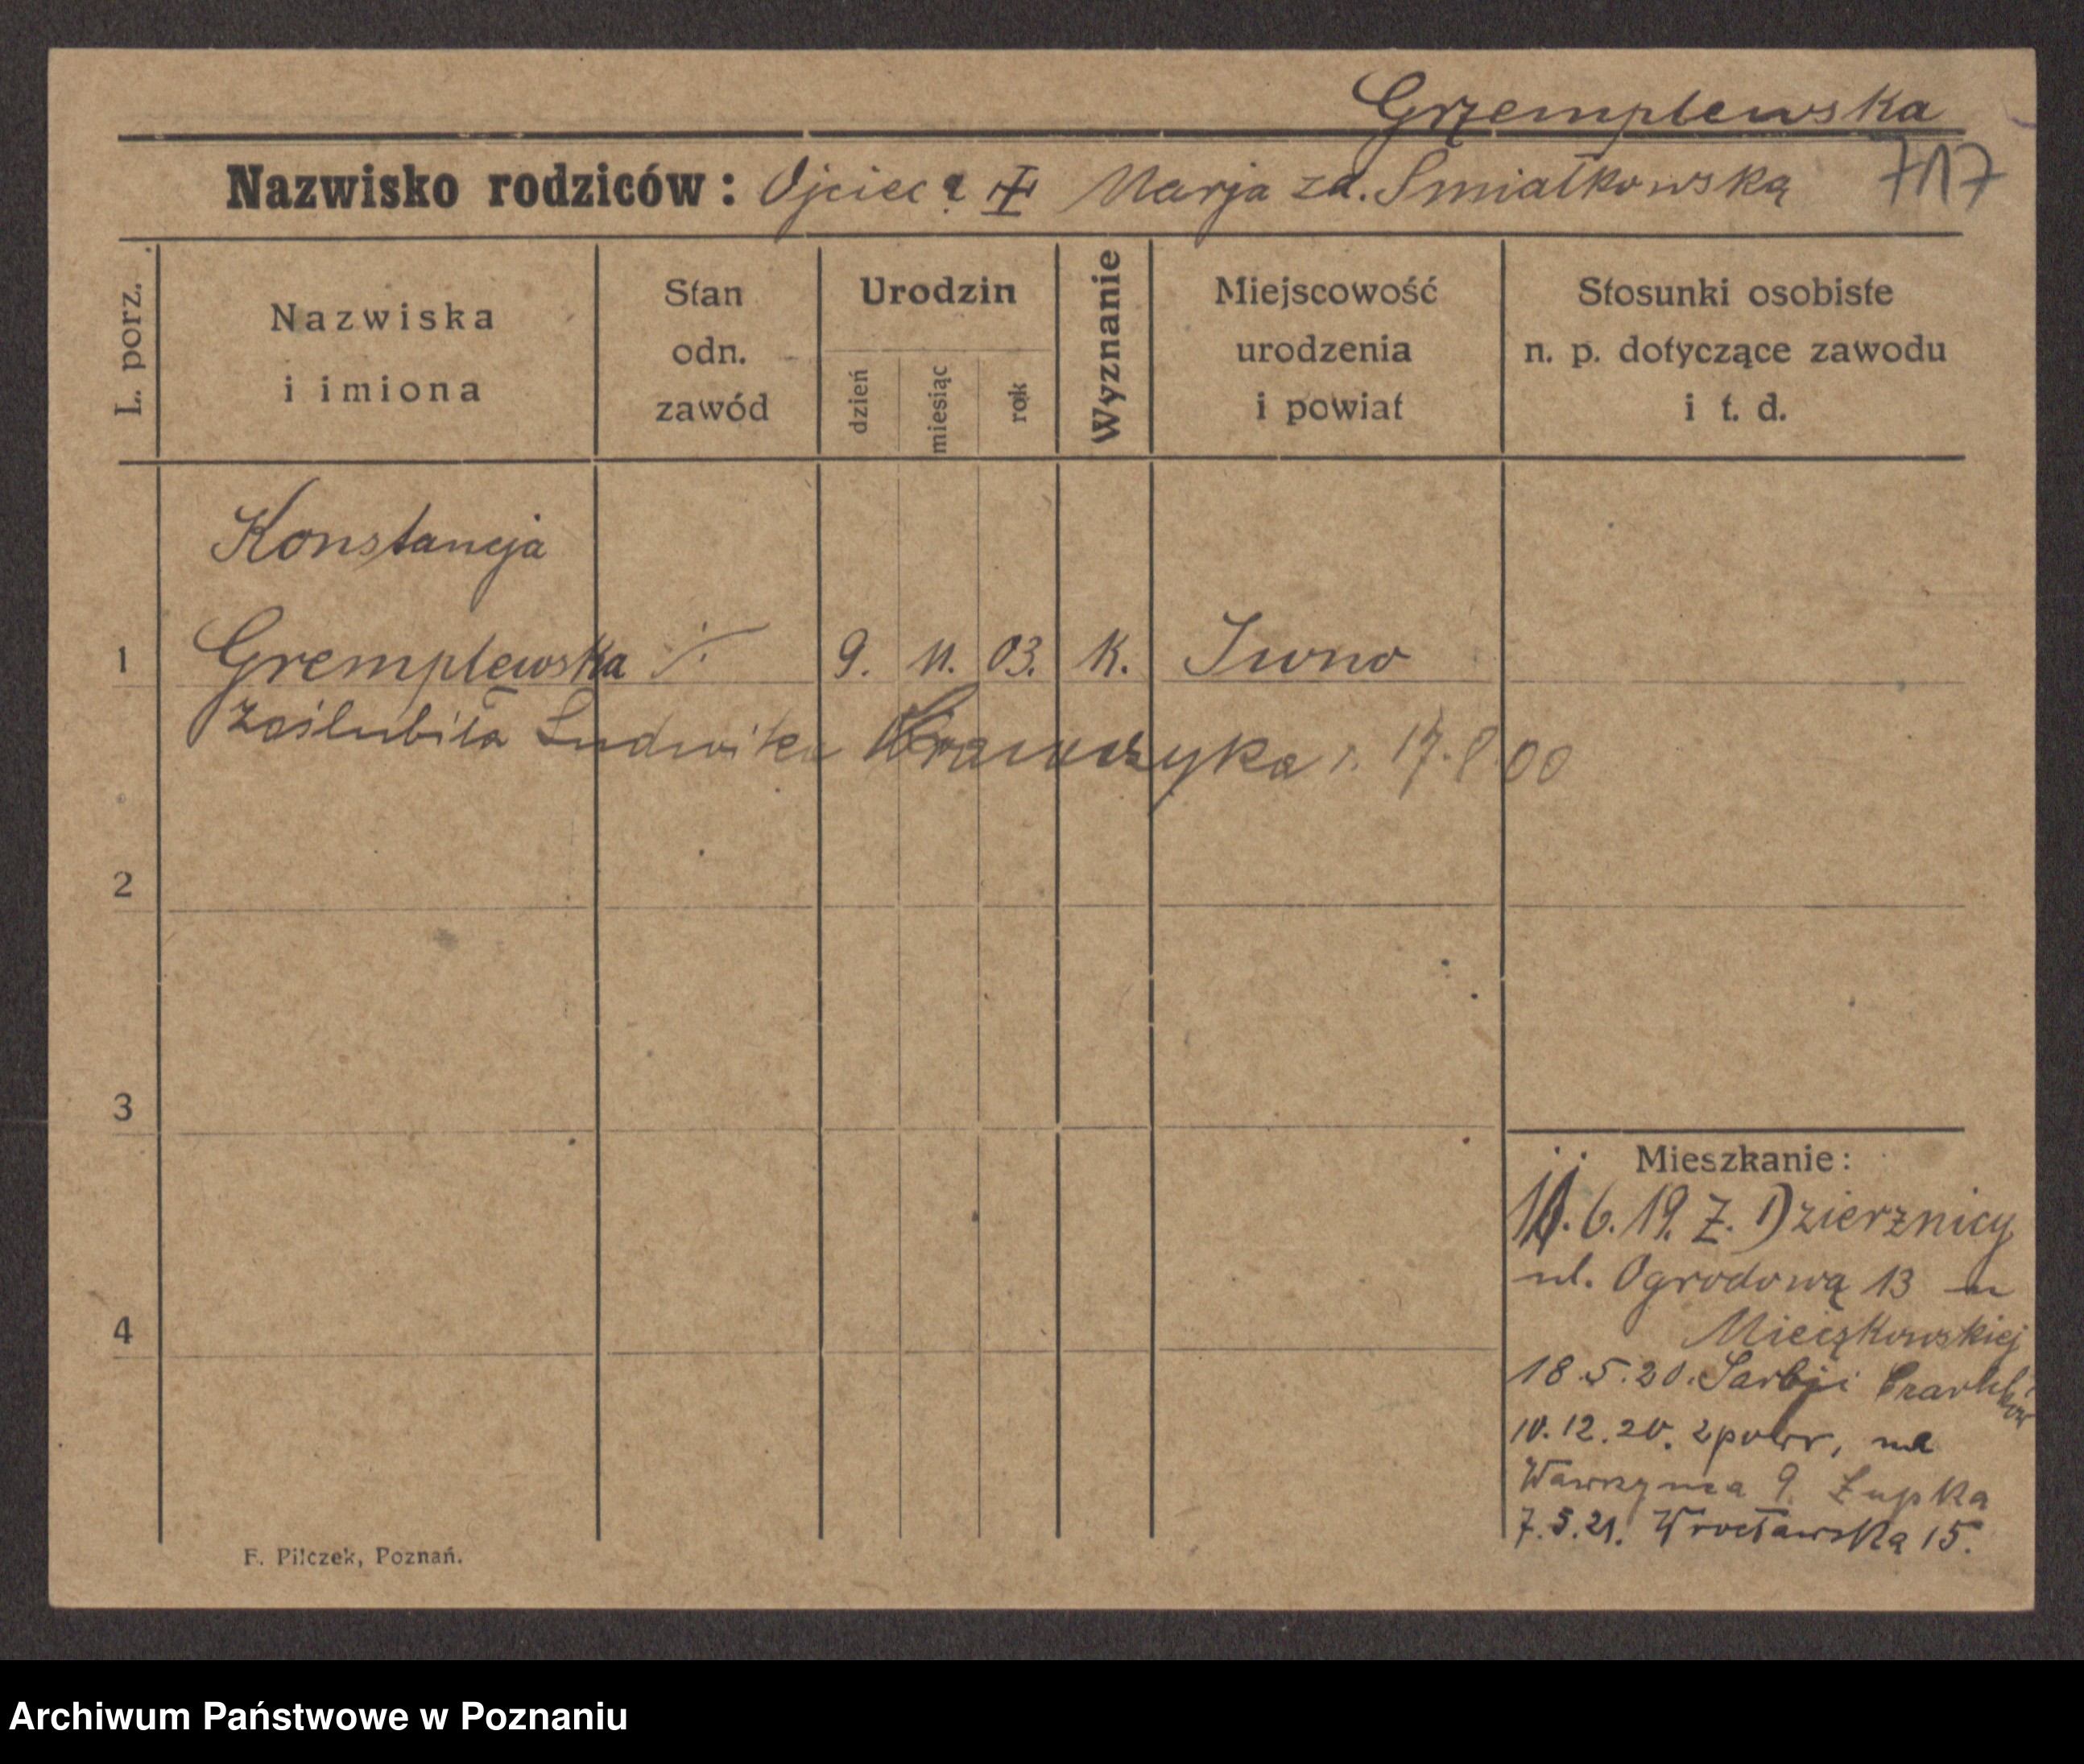 Grzemplewska
Nazwisko rodziców: Ojciec ? Marja zd. Smiałkowską 717
L. porz.
Nazwiska
i imiona
Stan
odn.
zawód
Urodzin
dzień
miesiąc
rok
Wyznanie
Miejscowość
urodzenia
i powiat
Stosunki osobiste
n. p. dotyczące zawodu
i t. d.
Konstancja
1 Gremplewska ./. 9. 11. 03. K. Iwno
zaślubiła Ludwika Krawczyka r. 17.8.00
2
3
4
Mieszkanie:
6. 19. z. Dzierznicy
ul. Ogrodową 13
Mieczkowskiej
18.5.20. Sarbji
10.12.20. zpowr, na
Wawrzynca 9. Łupka
7.5.21. Wrocławska 15.
F. Pilczek, Poznań.
Archiwum Państwowe w Poznaniu